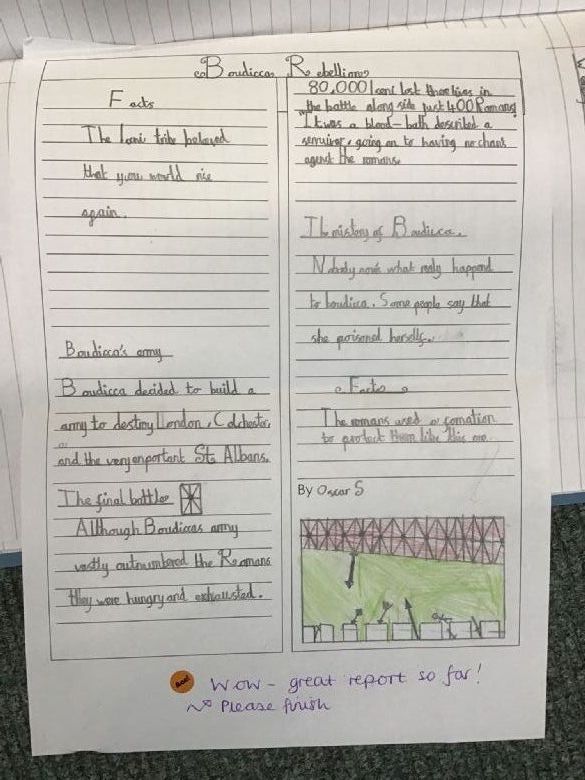 Boudiccas Rebellion
Facts
The Iceni tribe beleved
that you would rise
again.
Boudicca's army
Boudicca decided to build a
army to destroy London, Colchester,
and the very enportant St Albans.
The final battle
Although Boudiccas army
vastly outnumbered the Romans
they were hungry and exhausted.
80,000 Iceni lost their lives in
the battle along side just 400 Romans!
It was a blood-bath described a
serviver, going on to having no chans
agenst the romans.
The mistory of Boudicca.
Nobody nows what realy happend
to boudicca. Some people say that
she poisoned herself.
Facts
The romans used a fomation
to protect them like this one.
By Oscar S
Wow - great report so far!
Please finish